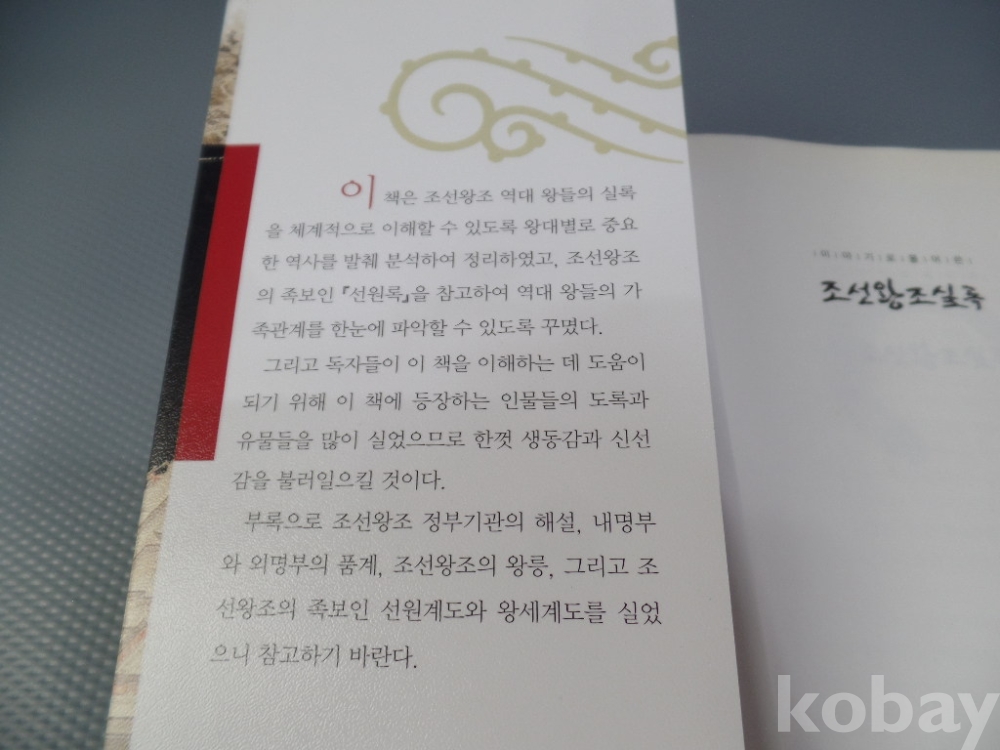 이 책은 조선왕조 역대 왕들의 실록
을 체계적으로 이해할 수 있도록 왕대별로 중요
한 역사를 발췌 분석하여 정리하였고, 조선왕조
의 족보인 『선원록』을 참고하여 역대 왕들의 가
족관계를 한눈에 파악할 수 있도록 꾸몄다.
그리고 독자들이 이 책을 이해하는 데 도움이
되기 위해 이 책에 등장하는 인물들의 도록과
유물들을 많이 실었으므로 한껏 생동감과 신선
감을 불러일으킬 것이다.
부록으로 조선왕조 정부기관의 해설, 내명부
와 외명부의 품계, 조선왕조의 왕릉, 그리고 조
선왕조의 족보인 선원계도와 왕세계도를 실었
으니 참고하기 바란다.
이야기로풀어쓴
조선왕조실록
kobay